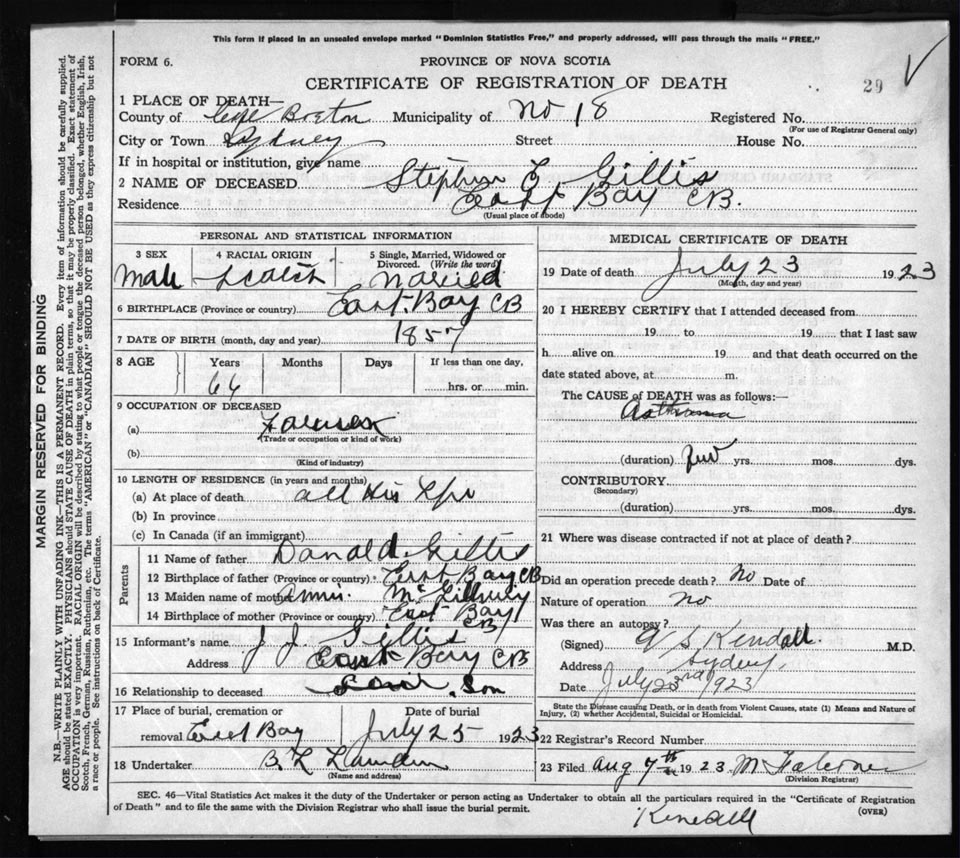 This form if placed in an unsealed envelope marked "Dominion Statistics Free," and properly addressed, will pass through the mails "FREE."
FORM 6.
PROVINCE OF NOVA SCOTIA
29
CERTIFICATE OF REGISTRATION OF DEATH
1 PLACE OF DEATH—
County of Cape Breton Municipality of No 18 Registered No.
(For use of Registrar General only)
City or Town Sydney Street House No.
If in hospital or institution, give name
2 NAME OF DECEASED Stephen E Gillis
Residence East Bay CB.
(Usual place of abode)
PERSONAL AND STATISTICAL INFORMATION
3 SEX 4 RACIAL ORIGIN 5 Single, Married, Widowed or Divorced. (Write the word)
Male Scotch Married
6 BIRTHPLACE (Province or country) East Bay CB
7 DATE OF BIRTH (month, day and year) 1857
8 AGE Years Months Days If less than one day,
66 hrs. or min.
9 OCCUPATION OF DECEASED
(a) Farmer
(Trade or occupation or kind of work)
(b)
(Kind of industry)
10 LENGTH OF RESIDENCE (in years and months)
(a) At place of death all his life
(b) In province
(c) In Canada (if an immigrant)
Parents
11 Name of father Donald Gillis
12 Birthplace of father (Province or country) East Bay CB
13 Maiden name of mother Annie Mc
14 Birthplace of mother (Province or country) East Bay CB
15 Informant's name J J Gillis
Address East Bay CB
16 Relationship to deceased Son
17 Place of burial, cremation or removal East Bay Date of burial July 25 1923
18 Undertaker B L
(Name and address)
MEDICAL CERTIFICATE OF DEATH
19 Date of death July 23 1923
(Month, day and year)
20 I HEREBY CERTIFY that I attended deceased from
19 to 19 that I last saw
h alive on 19 and that death occurred on the
date stated above, at m.
The CAUSE of DEATH was as follows:—
Asthma
(duration) few yrs. mos. dys.
CONTRIBUTORY
(Secondary)
(duration) yrs. mos. dys.
21 Where was disease contracted if not at place of death?
Did an operation precede death? No Date of
Nature of operation no
Was there an autopsy?
(Signed) Kendall M.D.
Address Sydney
Date July 23rd 1923
State the Disease causing Death, or in death from Violent Causes, state (1) Means and Nature of Injury, (2) whether Accidental, Suicidal or Homicidal.
22 Registrar's Record Number
23 Filed Aug 7th 1923
(Division Registrar)
SEC. 46—Vital Statistics Act makes it the duty of the Undertaker or person acting as Undertaker to obtain all the particulars required in the "Certificate of Registration
of Death" and to file the same with the Division Registrar who shall issue the burial permit.
(OVER)
Kendall
MARGIN RESERVED FOR BINDING
N.B.—WRITE PLAINLY WITH UNFADING INK—THIS IS A PERMANENT RECORD. Every item of information should be carefully supplied.
AGE should be stated EXACTLY. PHYSICIANS should STATE CAUSE OF DEATH in plain terms, so that it may be properly classified. Exact statement of
OCCUPATION is very important. RACIAL ORIGIN will be described by stating to what people or tongue the deceased person belonged, whether English, Irish,
Scotch, French, German, Russian, Ruthenian, etc. The terms "AMERICAN" or "CANADIAN" SHOULD NOT BE USED as they express citizenship but not
a race or people. See instructions on back of Certificate.